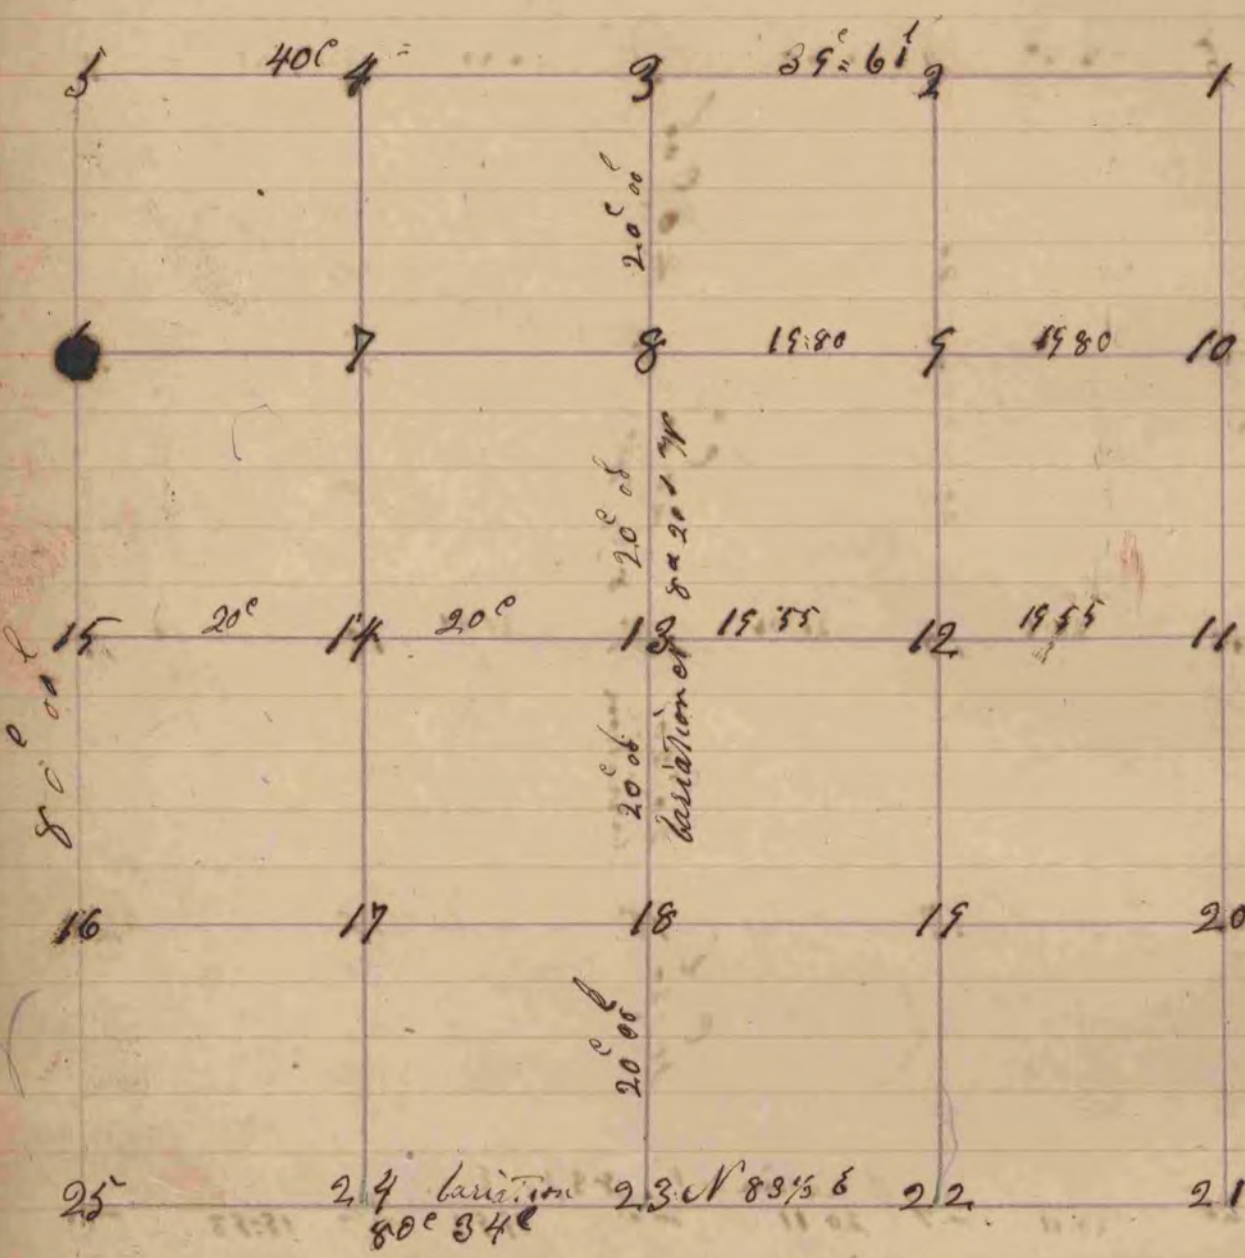 5 40c 4 3 39c=61l 2 1
20c 00l
6 7 8 19:80 9 1980 10
20c 00l
15 20c 14 20c 13 19:55 12 1955 11
variation N
80c 00l
20c 00l
16 17 18 19 20
20c 00l
25 24 variation 23 N 89⅓ E 22 21
80c 34l